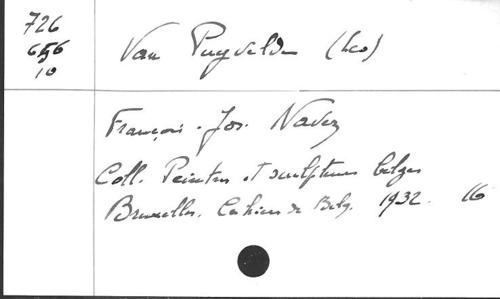 726
656
10
Van Puyvelde (Leo)
François-Jos. Navez
Coll. Peintres et sculpteurs belges
Bruxelles. Cahiers de Belg. 1932. 16